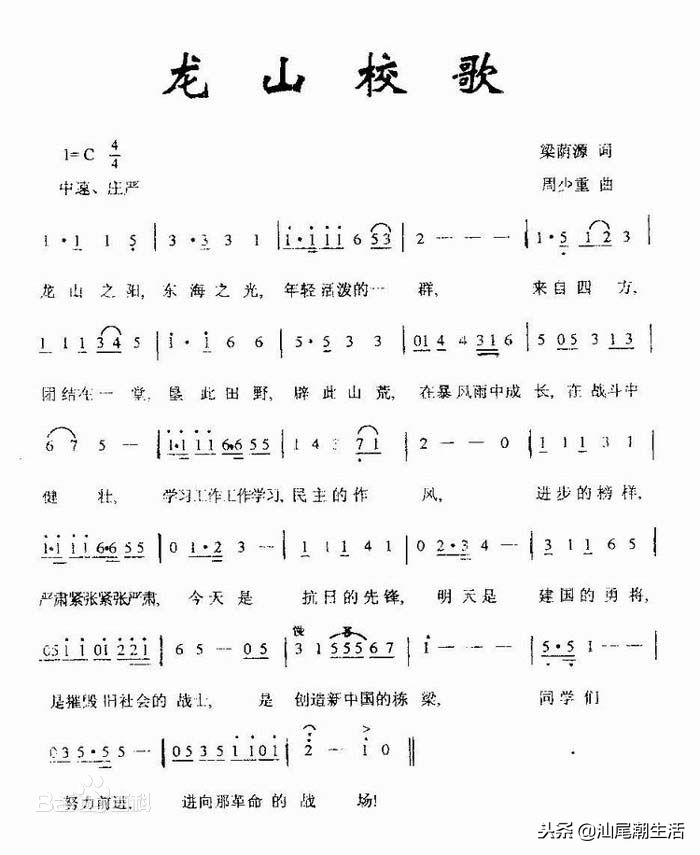 龙山校歌
1=C 4/4
梁荫源 词
中速、庄严
周少重 曲
1·1 1 5 | 3·3 3 1 | 1·1 1 1 6 53 | 2 - - - | 1·5 1 2 3 |
龙山之阳, 东海之光, 年轻活泼的一 群, 来自四方,
1 1 1 3 4 5 | 1·1 6 6 | 5·5 3 3 | 01 4 4 31 6 | 5 05 3 13 |
团结在一堂, 垦此田野, 辟此山荒, 在暴风雨中成长, 在战斗中
6 7 5 - | 1·1 1 1 6·6 5 5 | 1 4 3 7 1 | 2 - - 0 | 1 1 1 3 1 |
健壮, 学习工作工作学习, 民主的作 风, 进步的榜样,
1·1 1 1 6·6 5 5 | 0 1·2 3 - | 1 1 1 4 1 | 0 2·3 4 - | 3 1 1 6 5 |
严肃紧张紧张严肃, 今天是 抗日的先锋, 明天是 建国的勇将,
05 1 1 01 2 2 1 | 6 5 - 0 5 | 3 1 5 5 5 6 7 | 1 - - - | 5·5 1 - - |
是摧毁旧社会的战士, 是 创造新中国的栋 梁, 同学们
0 3 5·5 5 - - | 0 5 3 5 5 1 1 0 1 | 2 - 1 0 ‖
努力前进, 进向那革命的战 场!
Bai百科
头条 @汕尾潮生活